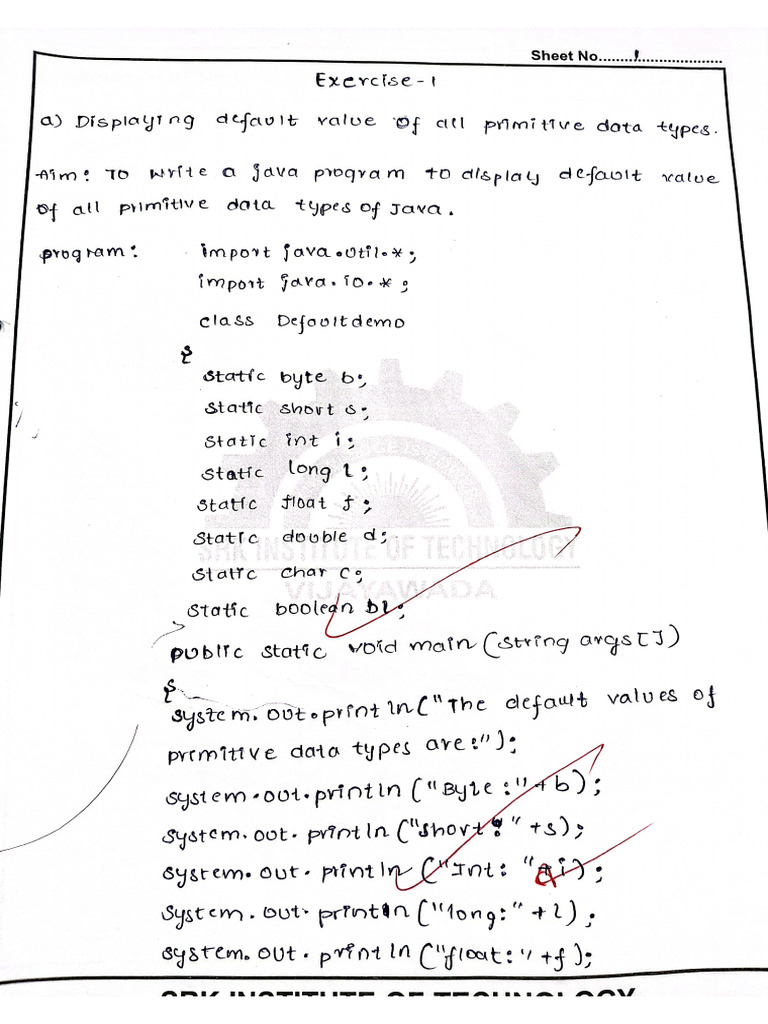 Sheet No........1.....................
Exercise-1
a) Displaying default value of all primitive data types.
Aim: To write a java program to display default value
of all primitive data types of Java.
program: import java.util.*;
import java.io.*;
class Defaultdemo
{
static byte b;
static short s;
static int i;
static long l;
static float f;
static double d;
SRK INSTITUTE OF TECHNOLOGY
static char c;
VIJAYAWADA
static boolean bl;
public static void main(string args[])
{
system.out.println("The default values of
primitive data types are:");
system.out.println("Byte:"+b);
system.out.println("short:"+s);
system.out.println("Int:"+i);
system.out.println("long:"+l);
system.out.println("float:"+f);
SRK INSTITUTE OF TECHNOLOGY